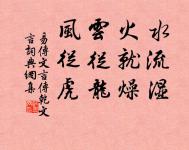 水流濕
火就燥
雲從龍
風從虎
易傳文言傳乾文
言詞典網集